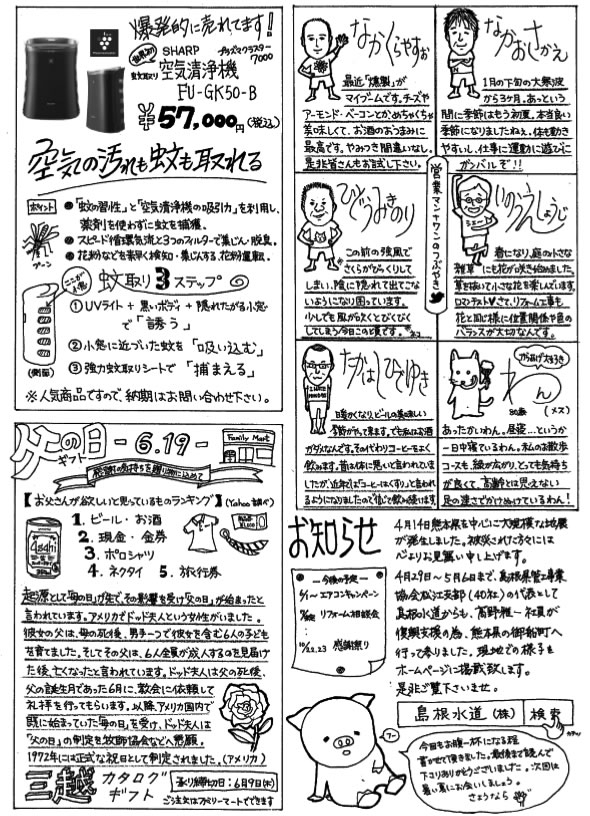 爆発的に売れてます!
世界初
蚊取り
SHARP
プラズマクラスター
7000
空気清浄機
FU-GK50-B
¥57,000円(税込)
空気の汚れも蚊も取れる
ポイント
●「蚊の習性」と「空気清浄機の吸引力」を利用し、
薬剤を使わずに蚊を捕獲。
●スピード循環気流と3つのフィルターで集じん・脱臭。
●花粉などを素早く検知・集じんする、花粉運転。
プーン
蚊取り3ステップ
①UVライト+黒いボディ+隠れたがる小窓
で「誘う」
②小窓に近づいた蚊を「吸い込む」
③強力蚊取りシートで「捕まえる」
(側面)
※人気商品ですので、納期はお問い合わせ下さい。
父の日
ギフト
-6.19-
Family Mart
感謝の気持ちを贈り物に込めて
【お父さんが欲しいと思っているものランキング】(Yahoo調べ)
1. ビール・お酒
2. 現金・金券
3. ポロシャツ
4. ネクタイ 5. 旅行券
Asahi
起源として「母の日」が先で、その影響を受け「父の日」が始まったと
言われています。アメリカでドッド夫人という女性がいました。
彼女の父は、母の死後、男手一つで彼女を含む6人の子ども
を育てました。そしてその父は、6人全員が成人するのを見届け
た後、亡くなったと言われています。ドッド夫人は父の死後、
父の誕生月であった6月に、教会に依頼して
礼拝を行ってもらいます。以降、アメリカ国内で
既に始まっていた「母の日」を受け、ドッド夫人は
「父の日」の制定を牧師協会などへ懇願。
1972年には正式な祝日として制定されました。(アメリカ)
三越
カタログ
ギフト
承り締切日:6月9日(木)
ご注文はファミリーマートでできます
営業マンナワンのつぶやき
なかくらやすお
最近「燻製」が
マイブームです。チーズや
アーモンド・ベーコンとか、めちゃくちゃ
美味しくて、お酒のおつまみに
最高です。やみつき間違いなし。
是非皆さんもお試し下さい。
なかおさかえ
1月の下旬の大寒波
から3ヶ月。あっという
間に季節はもう初夏。本当良い
季節になりましたねぇ。体も動き
やすいし、仕事に運動に遊びに
ガンバルぞ!!
ひどうみきのり
この前の強風で
さくらがびっくりして
しまい、陰に隠れて出てこな
いようになり困っています。
少しでも風が吹くとびくびく
してしまう今日この頃です。
いのうえしょうじ
春になり、庭の小さな
雑草にも花が咲き始めました。
草を抜いて小さな花を楽しんでいます。
ロマンチスト♥さて、リフォーム工事も
花と同じ様に位置関係や色の
バランスが大切なんです。
たかはしひでゆき
暖かくなり、ビールの美味しい
季節がやって来ます。でも私はお酒
がダメなんです。その代わりコーヒーをよく
飲みます。昔は体に悪いと言われていま
したが、近年ではコーヒーはくすり、と言われ
るようになりましたので信じて飲み続けます。
からあげ大好き
わん
80歳
(メス)
あったかいわん…昼寝…というか
一日中寝ているわん。私のお散歩
コースも、緑が広がり、とっても気持ち
が良くて、高齢とは思えない
足の速さでかけぬけているわん!
お知らせ
-今後の予定-
エアコンキャンペーン
リフォーム相談会
感謝祭り
4月14日熊本県を中心に大規模な地震
が発生しました。被災された方々には
心よりお見舞い申し上げます。
4月29日~5月6日まで、島根県管工事業
協会松江支部(40社)の代表として
島根水道からも、高野雅一社員が
復興支援の為、熊本県の御船町へ
行って参りました。現地での様子を
ホームページに掲載致します。
是非ご覧下さいませ。
島根水道(株)
検索
今日もお腹一杯になる程
書かせて頂きました。最後まで読んで
下さりありがとうございました。次回は
暑い夏にお会いしましょう。
さようなら